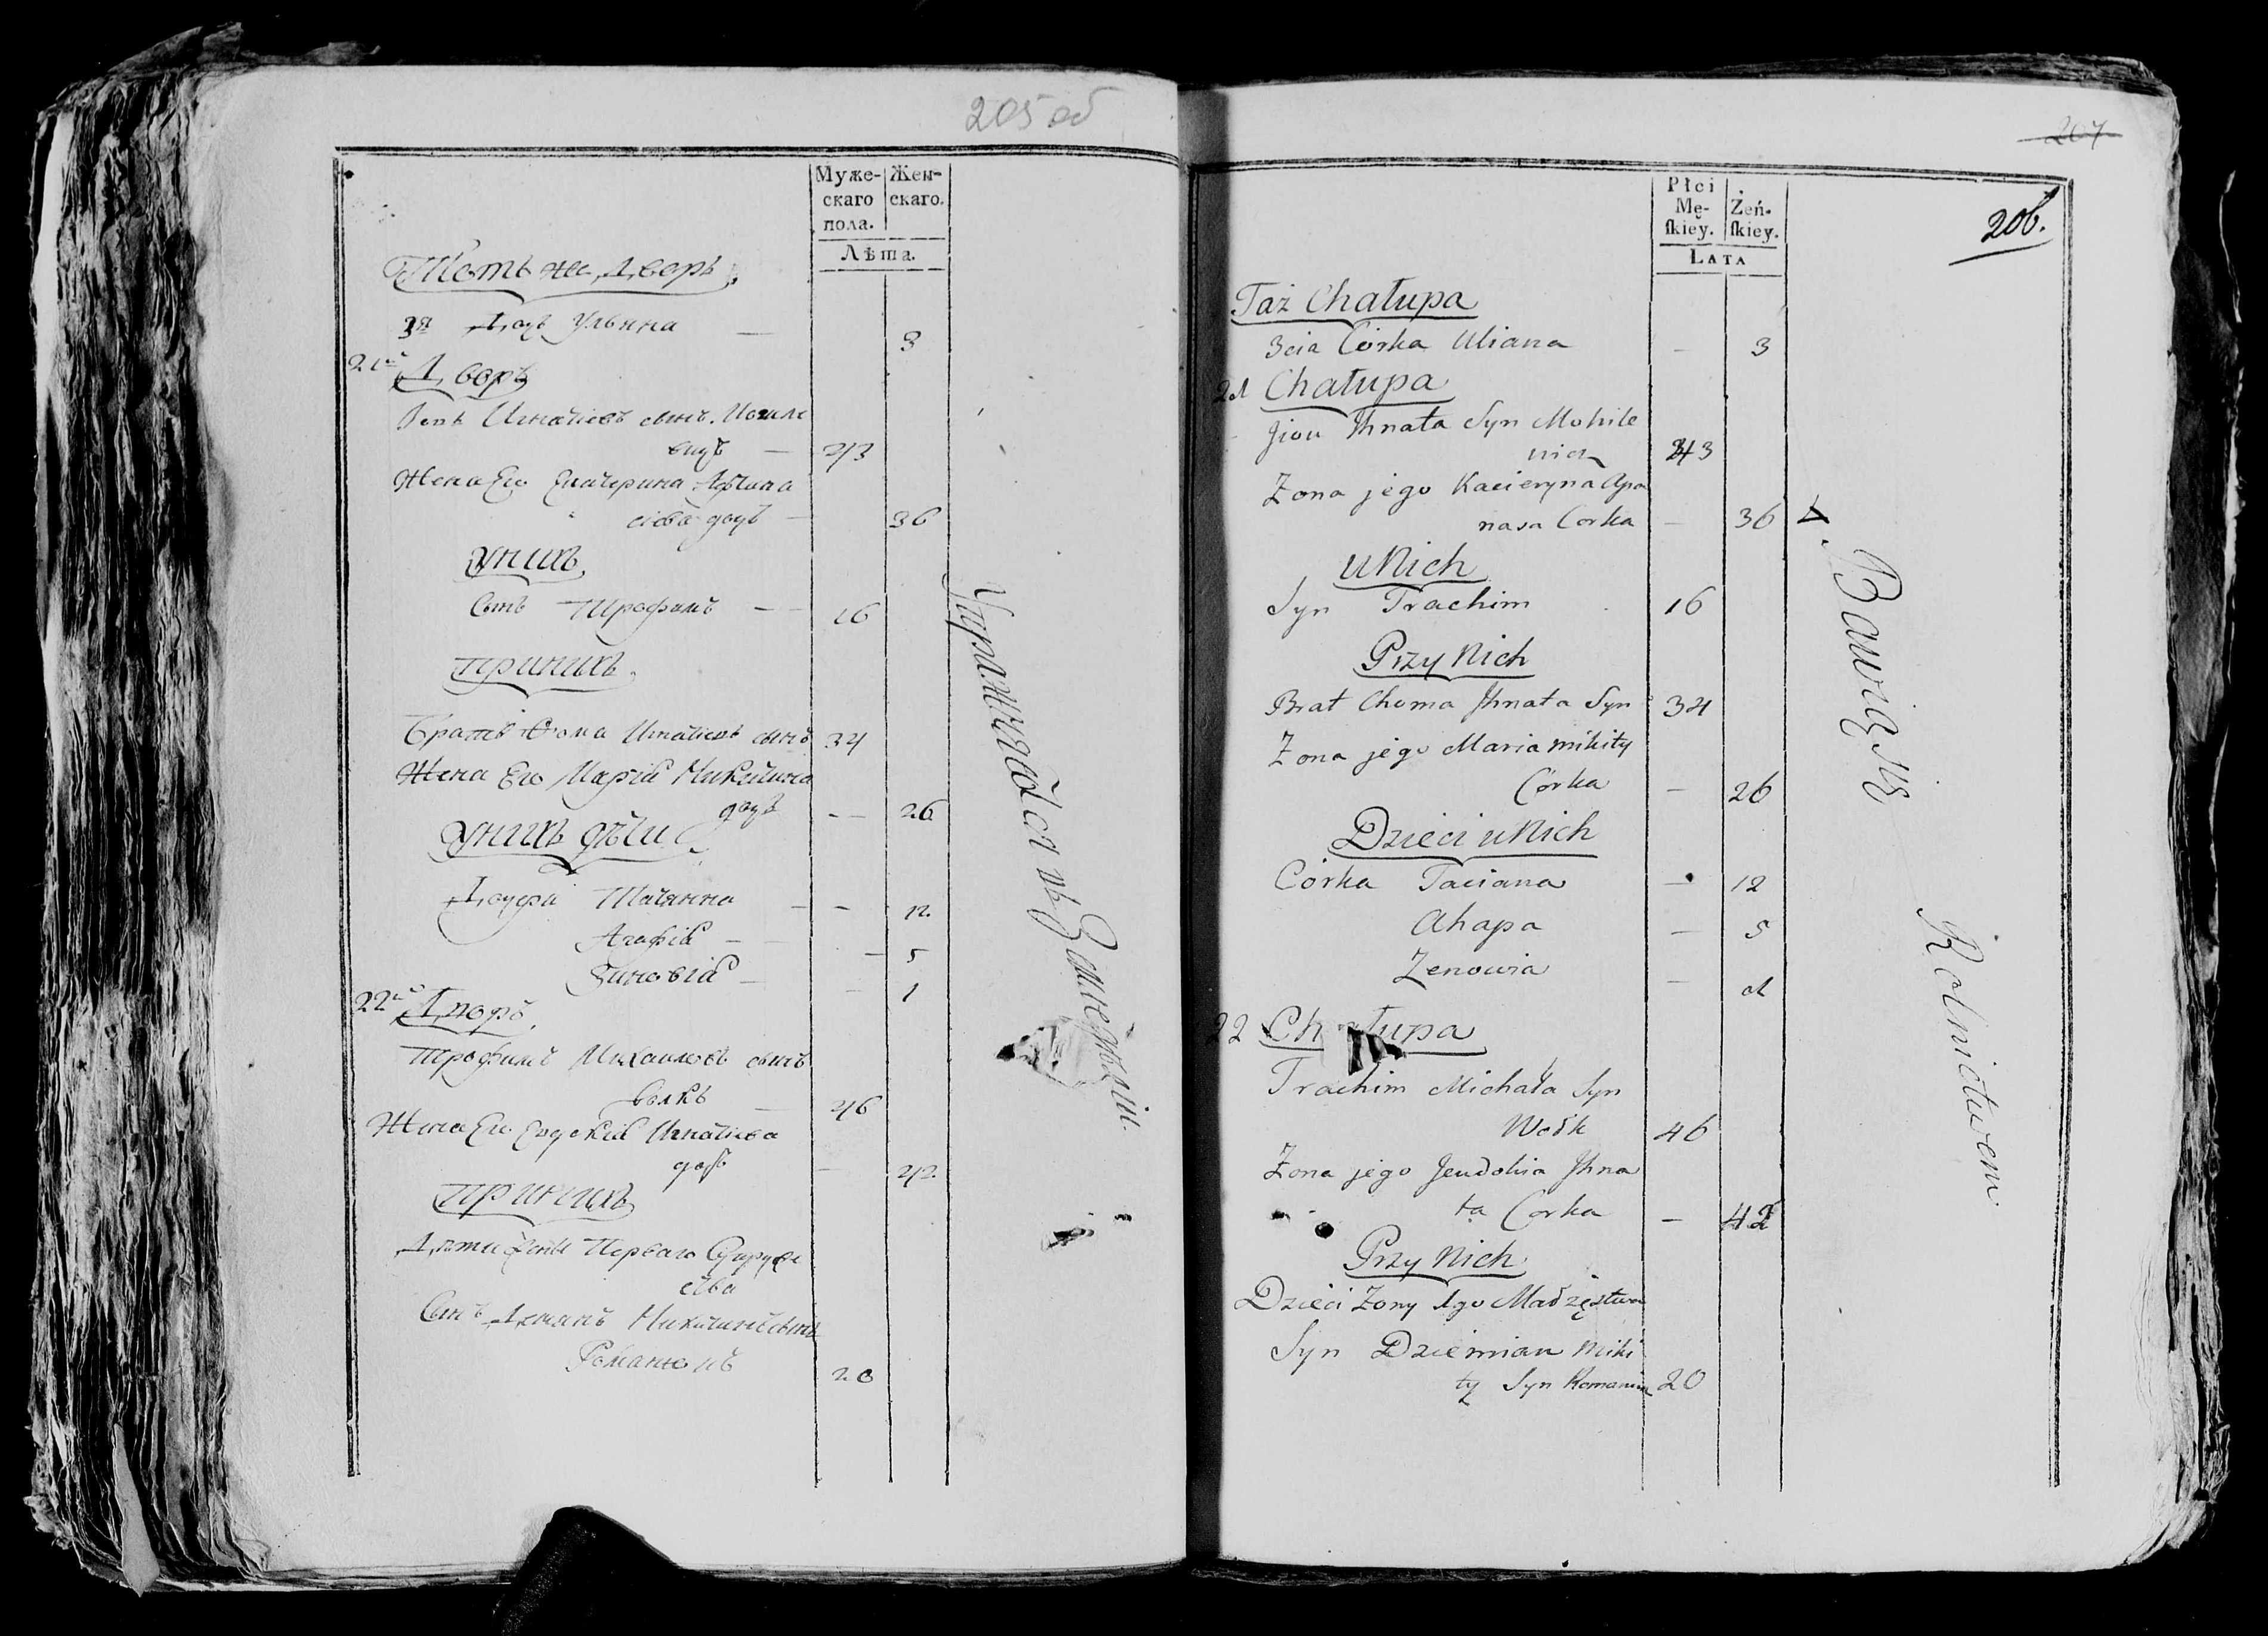 205 об
Муже-
скаго
пола.
Жен-
скаго.
Лѣта.
Тотъ же Дворъ
3я Доч Ульяна — 3
21й Дворъ
Игнатіевъ сынъ Могиле
вичъ — 43
Жена Его Екатерина Афана
сіева дочь — 36
У нихъ
Сынъ Трофимъ — 16
При нихъ
Братъ Фома Игнатіевъ сынъ 34
Жена Его Марія Никитина
дочь — 26
У нихъ дѣти
Дочери Татіянна — 12
Агафія — 5
Зиновія — 1
22й Дворъ
Трофимъ Михаиловъ сынъ
Волкъ — 46
Жена Его Евдокія Игнатіева
дочь — 42
При нихъ
Дѣти Жены Перваго Супруже
ства
Сынъ Демянъ Никитинъ сынъ
20
Упражняются въ Земледѣліи.
207
206.
Płci
Mę-
skiey.
Żeń-
skiey.
Lata
Taż Chałupa
3cia Córka Uliana — 3
21 Chałupa
Jhnata Syn Mohile
wicz 43
Żona jego Kacieryna Apa
nasa Corka — 36
u Nich
Syn Trachim 16
Przy Nich
Brat Choma Jhnata Syn 34
Żona jego Maria Mikity
Córka — 26
Dzieci u Nich
Córka Taciana — 12
Ahapa — 5
Zenowia — 1
22 Chałupa
Trachim Michała Syn
Wołk 46
Żona jego Jeudokia Jhna
ta Corka — 42
Przy Nich
Dzieci Żony 1go Małżęstwa
Syn Dziemian Miki
ty Syn 20
Bawią się
Rolnictwem.